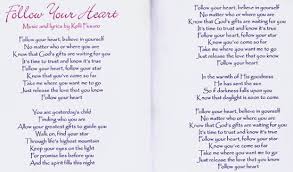 Follow Your Heart
Music and lyrics by Kelli
Follow your heart, believe in yourself
No matter who or where you are
Know that God's gifts are waiting for you
It's time to trust and know it's true
Follow your heart, follow your star
Know you've come so far
Take me where you want me to go
Just release the love that's within me
Follow your heart
You are yesterday's child
Finding who you are
Allow your greatest gifts to guide you
Walk on, find your star
Through life's highest mountain
Keep your eyes on the light
For promise lies before you
And the spirit fills this night
Follow your heart, believe in yourself
No matter who or where you are
Know that God's gifts are waiting for you
It's time to trust and know it's true
Follow your heart, follow your star
Know you've come so far
Take me where you want me to go
Just release the love that's within me
Follow your heart
In the warmth of His goodness
He has sent the sea
So if darkness falls upon you
Know that daylight is soon to come.
Follow your heart, believe in yourself
No matter who or where you are
Know that God's gifts are waiting for you
It's time to trust and know it's true
Follow your heart, follow your star
Know you've come so far
Take me where you want me to go
Just release the love that's within me
Follow your heart